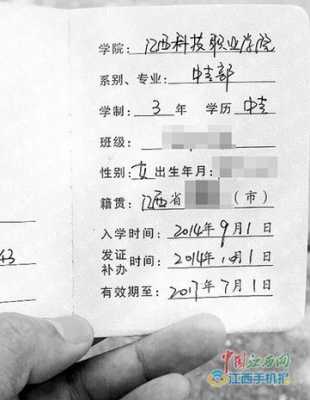 学院：江西科技职业学院
系别、专业：中专部
学制：3年 学历 中专
班级：
性别：女 出生年月：
籍贯：江西省 （市）
入学时间：2014年9月1日
发证
补办 时间：2014年10月1日
有效期至：2017年7月1日
中国江西网
江西手机报